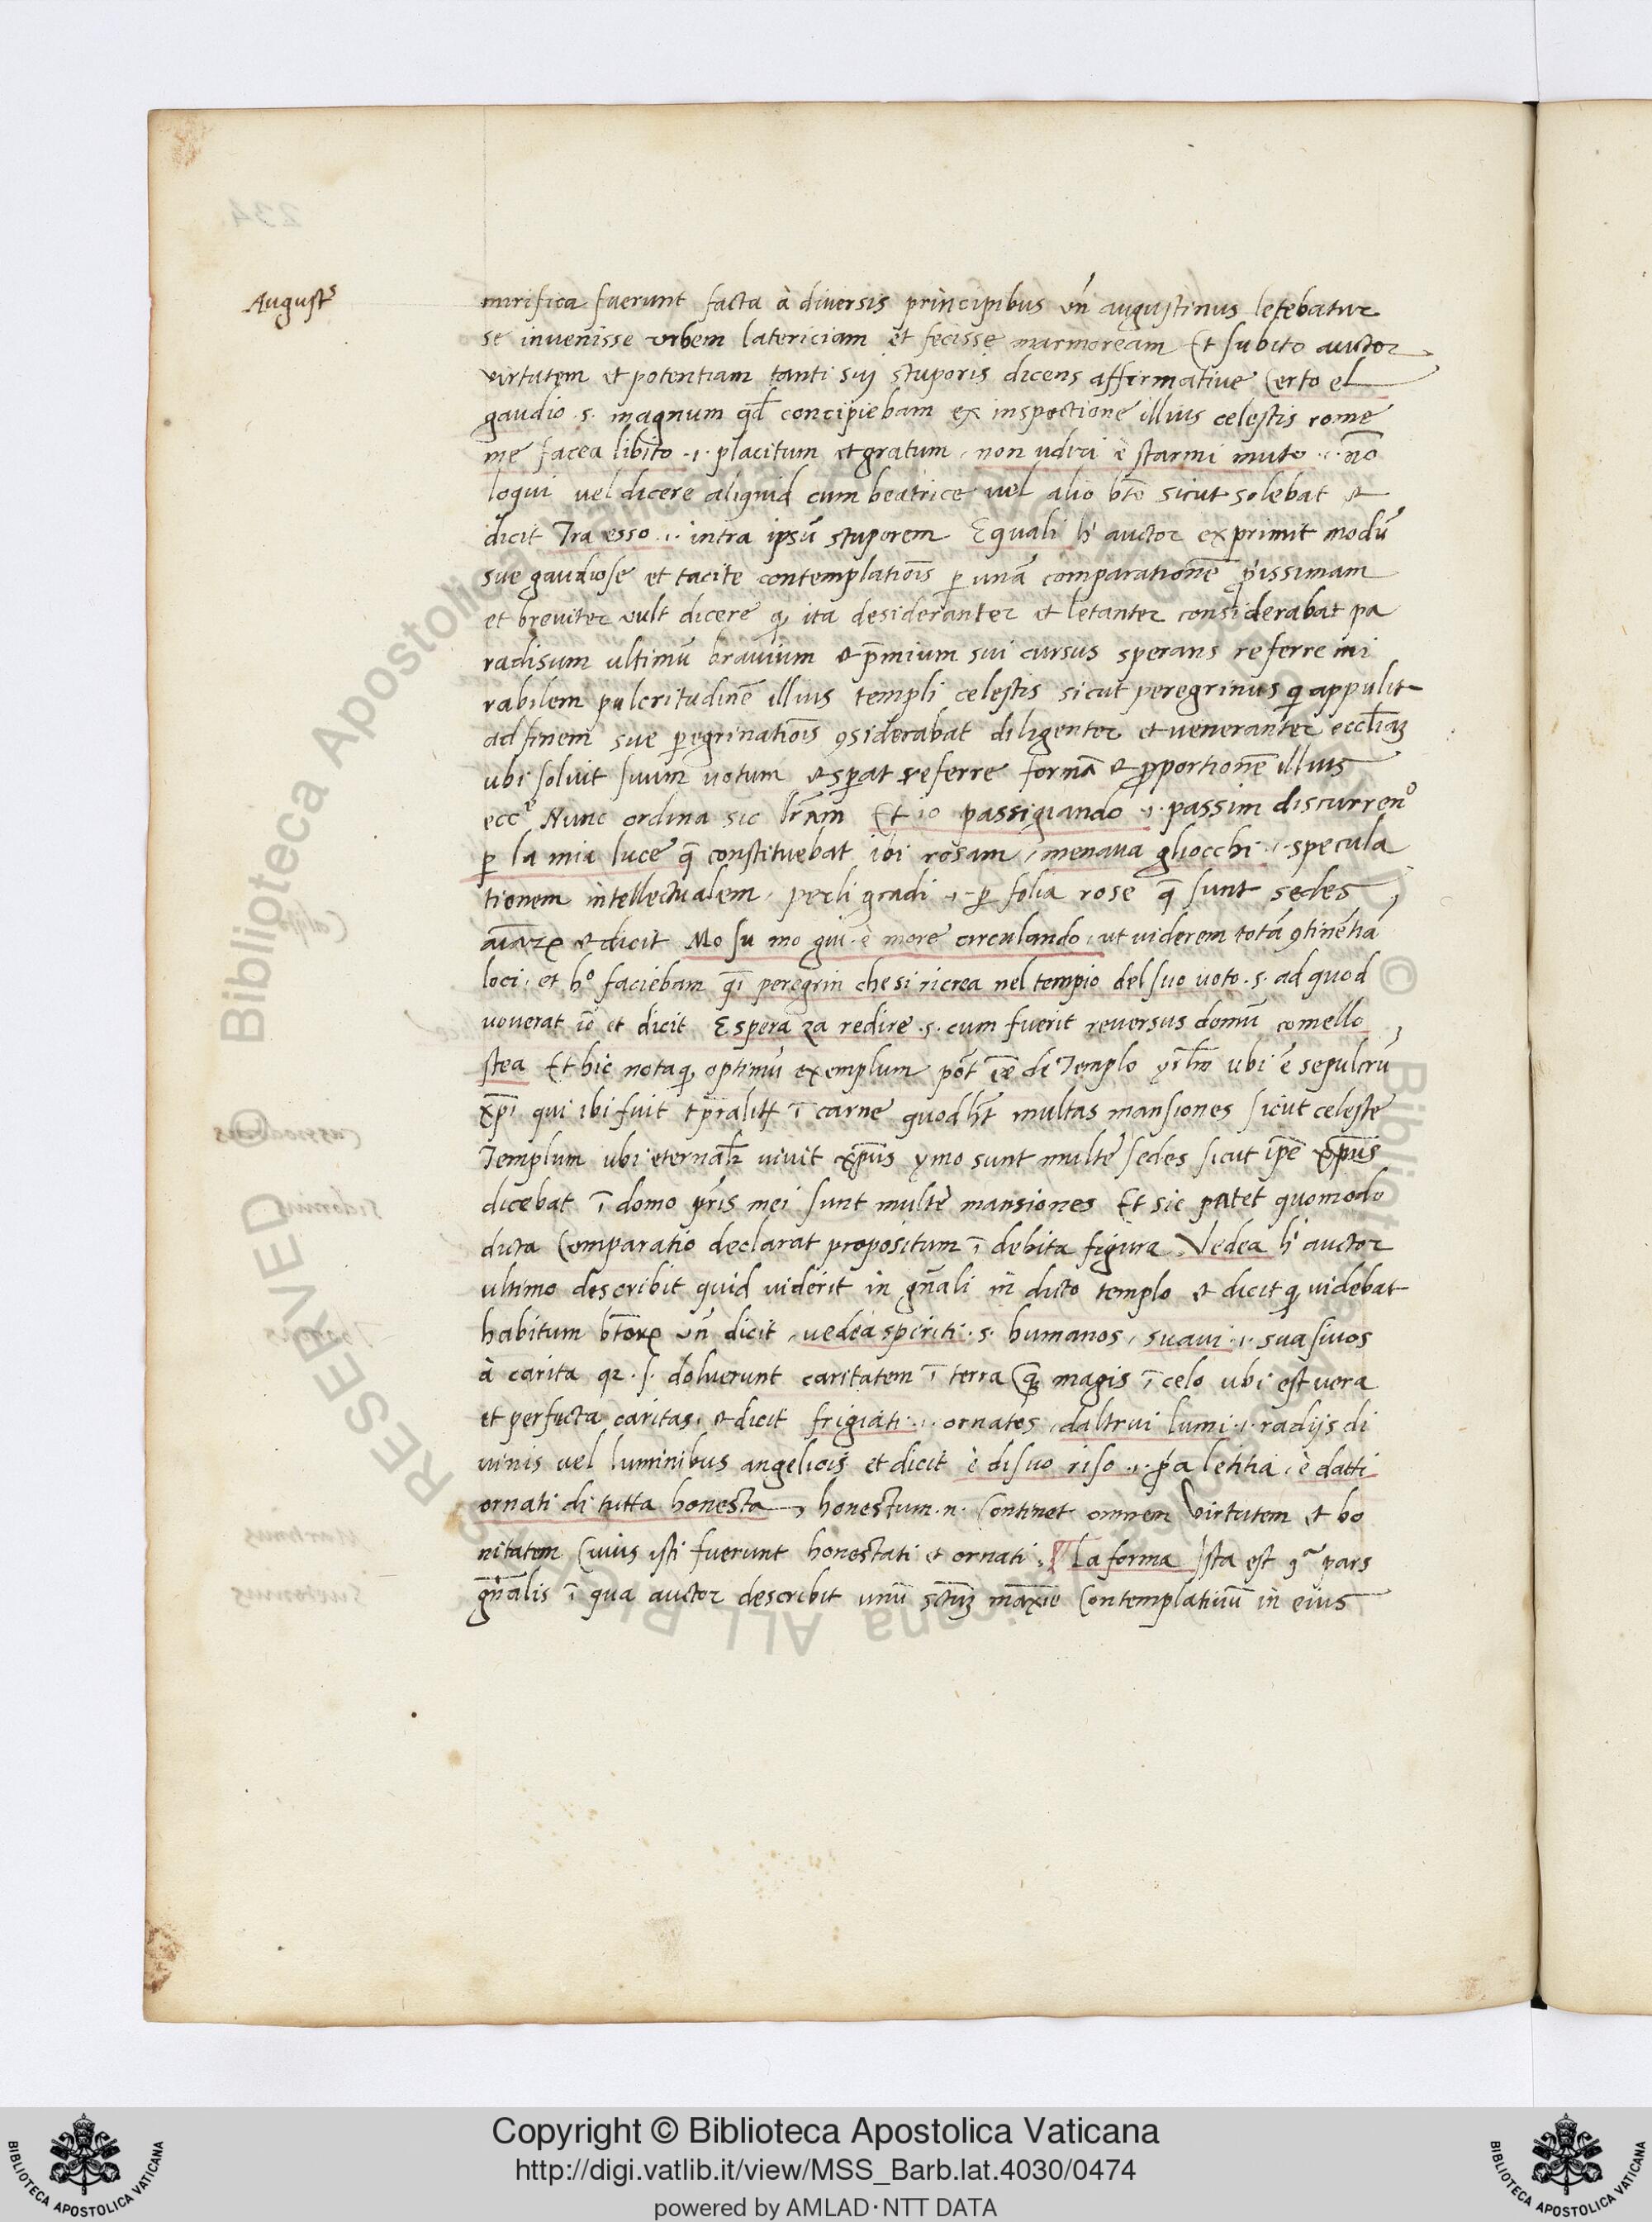 August^s
mirifica fuerunt facta à diversis principibus vñ augustinus letebatur
se invenisse vrbem latericiam et fecisse marmoream Et subito auctor
virtutem et potentiam tanti sui stuporis dicens affirmative Certo el
gaudio .s. magnum qđ concipiebam ex inspectione illius celestis rome
me facea libito .i. placitum et gratum, non udiri è starmi muto .i. nō
loqui vel dicere aliquid cum beatrice vel alio bt̄o sicut solebat et
dicit Tra esso .i. intra ipsū stuporem E quali hi auctor exprimit modū
sue gaudiose et tacite contemplatiōis p unā comparationē pp̄issimam
et breviter vult dicere q, ita desideranter et letanter considerabat pa
radisum ultimū bravium et p̄mium sui cursus sperans referre mi
rabilem pulcritudinē illius templi celestis sicut peregrinus qi appulit
ad finem sue pegrinatiōis ꝯsiderabat diligenter et veneranter eccl̄iaz
ubi soluit suum votum et sperat referre formā et proportionē illius
ecc^e Nunc ordina sic lr̄am Et io passigiando .i. passim discurren^o
p la mia luce q̄ constituebat ibi rosam, menava gliocchi .i. specula
tionem intellectualem, perli gradi .i. p folia rose q̄ sunt sedes
aīarꝝ et dicit Mo su mo giu è more circulando, ut viderem totā ꝯtinētiā
loci, et h^o faciebam q̄i peregrin che si ricrea nel tempio del suo voto .s. ad quod
voverat iō et dicit E spera za redire .s. cum fuerit reversus domū comello
stea Et hic nota q, optimū exemplum pōt eē di Templo yr̄lm̄ ubi ē sepulcrū
xp̄i qui ibi fuit tp̄ralit̄ ī carne quod h̄t multas mansiones sicut celeste
Templum ubi eternalr̄ vivit xp̄us ymo sunt multe sedes sicut ip̄e xp̄us
dicebat ī domo pr̄is mei sunt multe mansiones Et sic patet quomodo
dicta Comparatio declarat propositum ī debita figura Vedea hi auctor
ultimo describit quid viderit in gn̄ali in dicto templo et dicit q videbat
habitum bt̄orꝝ vñ dicit, vedea spiriti .s. humanos, suavi .i. suasivos
à carita qz .s. doluerunt caritatem ī terra q̄ magis ī celo ubi est vera
et perfecta caritas, et dicit frigiati .i. ornatos, daltrui lumi .i. radijs di
vinis vel luminibus angelicis et dicit è di suo riso .i. pp̄a letitia, è datti
ornati di tutta honesta, honestum .n. Continet omnem virtutem et bo
nitatem Cuius isti fuerunt honestati et ornati. ¶ La forma Ista est 9^a pars
gn̄alis ī qua auctor describit unū sc̄tuz māxie Contemplativū in eius
Copyright © Biblioteca Apostolica Vaticana
http://digi.vatlib.it/view/MSS_Barb.lat.4030/0474
powered by AMLAD·NTT DATA